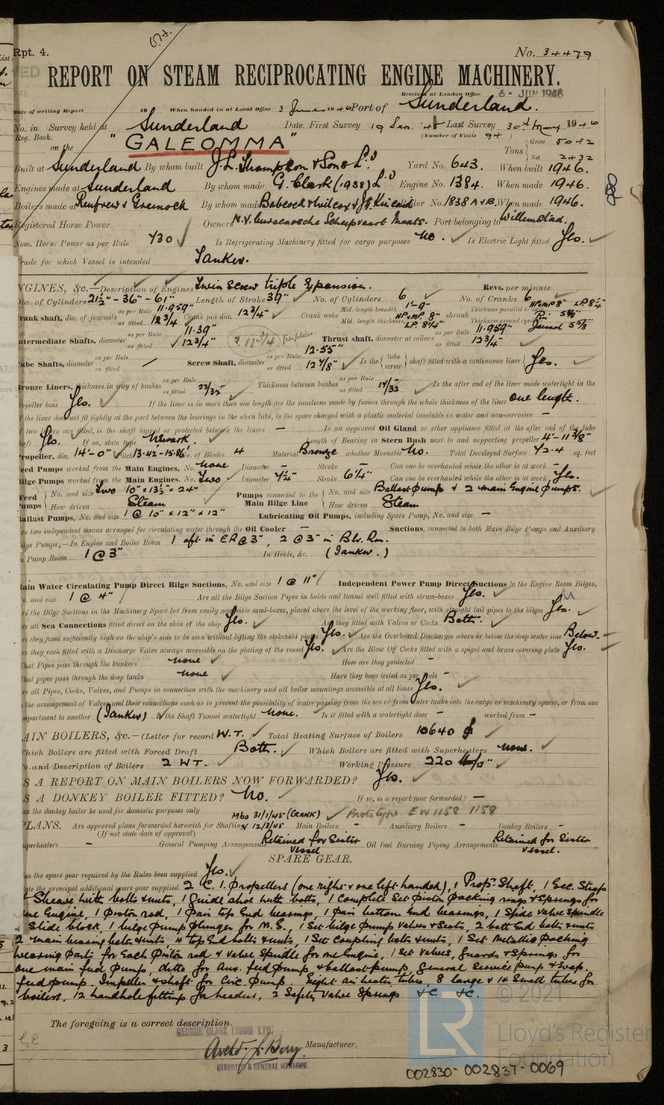 Rpt. 4.
No. 34479
REPORT ON STEAM RECIPROCATING ENGINE MACHINERY.
Received at London Office 6 - JUN 1946
Date of writing Report 19 When handed in at Local Office 3 June 1946 Port of Sunderland.
No. in Survey held at Sunderland Date, First Survey 19 Last Survey 30th May 1946
Reg. Book. (Number of Visits 94)
on the "GALEOMMA" Tons Gross 5042 Net 2432
Built at Sunderland By whom built J. L. Thompson & Sons Ld Yard No. 643. When built 1946.
Engines made at Sunderland By whom made G. Clark (1938) Ld Engine No. 1384. When made 1946.
Boilers made at Renfrew & Greenock By whom made Babcock & Wilcox & J. G. Kincaid Boiler No. 1838 A & B. When made 1946.
Registered Horse Power Owners N.V. Curacaosche Scheepvaart Maats. Port belonging to Willemstad.
Nom. Horse Power as per Rule 430 Is Refrigerating Machinery fitted for cargo purposes No. Is Electric Light fitted Yes.
Trade for which Vessel is intended Tanker.
ENGINES, &c.—Description of Engines Twin Screw triple Expansion. Revs. per minute
No. of Cylinders 21½" - 36" - 61" Length of Stroke 39" No. of Cylinders 6 No. of Cranks 6
Crank shaft, dia. of journals as per Rule 11.959" as fitted 12¾" Crank pin dia. 12¾" Crank webs Mid. length breadth 1'-9"
Intermediate Shafts, diameter as per Rule 11.39" as fitted 12¾" Thrust shaft, diameter at collars as per Rule 11.959" as fitted 12¾"
Tube Shafts, diameter as per Rule as fitted Screw Shaft, diameter as per Rule 12.55" as fitted 12⅞" Is the tube screw shaft fitted with a continuous liner Yes.
Bronze Liners, thickness in way of bushes as per Rule as fitted 23/32" Thickness between bushes as per Rule as fitted 17/32" Is the after end of the liner made watertight in the
propeller boss Yes. If the liner is in more than one length are the junctions made by fusion through the whole thickness of the liner one length.
If the liner does not fit tightly at the part between the bearings in the stern tube, is the space charged with a plastic material insoluble in water and non-corrosive –
If two liners are fitted, is the shaft lapped or protected between the liners – Is an approved Oil Gland or other appliance fitted at the after end of the tube
shaft Yes. If so, state type Newark. Length of Bearing in Stern Bush next to and supporting propeller 4'-11⅜"
Propeller, dia. 14'-0" 13.42-15.86' No. of Blades 4 Material Bronze whether Moveable No. Total Developed Surface 42.4 sq. feet
Feed Pumps worked from the Main Engines, No. None Diameter – Stroke – Can one be overhauled while the other is at work –
Bilge Pumps worked from the Main Engines, No. Two Diameter 4½" Stroke Can one be overhauled while the other is at work Yes.
Feed Pumps No. and size Two 10" x 13½" x 24" Pumps connected to the Main Bilge Line No. and size Ballast Pumps & 2 main Engine Pumps.
How driven Steam How driven Steam
Ballast Pumps, No. and size 1 @ 10" x 12" x 12" Lubricating Oil Pumps, including Spare Pump, No. and size –
Are two independent means arranged for circulating water through the Oil Cooler – Suctions, connected to both Main Bilge Pumps and Auxiliary
Bilge Pumps;—In Engine and Boiler Room 1 aft in ER @ 3", 2 @ 3" in Blr. Rm.
In Pump Room 1 @ 3" In Holds, &c. (Tanker.)
Main Water Circulating Pump Direct Bilge Suctions, No. and size 1 @ 11" Independent Power Pump Direct Suctions to the Engine Room Bilges,
No. and size 1 @ 4" Are all the Bilge Suction Pipes in holds and tunnel well fitted with strum-boxes Yes.
Are the Bilge Suctions in the Machinery Space led from easily accessible mud-boxes, placed above the level of the working floor, with straight tail pipes to the bilges Yes.
Are all Sea Connections fitted direct on the skin of the ship Yes. Are they fitted with Valves or Cocks Both.
Are they fixed sufficiently high on the ship's side to be seen without lifting the stokehold plates Yes. Are the Overboard Discharges above or below the deep water line Below.
Are they each fitted with a Discharge Valve always accessible on the plating of the vessel Yes. Are the Blow Off Cocks fitted with a spigot and brass covering plate Yes.
What Pipes pass through the bunkers none How are they protected –
What pipes pass through the deep tanks none Have they been tested as per rule –
Are all Pipes, Cocks, Valves, and Pumps in connection with the machinery and all boiler mountings accessible at all times Yes.
Is the arrangement of Valves and their connections such as to prevent the possibility of water passing from the sea or from water tanks into the cargo or machinery spaces, or from one
compartment to another (Tanker) Is the Shaft Tunnel watertight None. Is it fitted with a watertight door – worked from –
MAIN BOILERS, &c.—(Letter for record W.T. Total Heating Surface of Boilers 10640
Which Boilers are fitted with Forced Draft Both. Which Boilers are fitted with Superheaters none.
No. and Description of Boilers 2 W.T. Working Pressure 220
IS A REPORT ON MAIN BOILERS NOW FORWARDED? Yes.
IS A DONKEY BOILER FITTED? No. If so, is a report now forwarded? –
Is the donkey boiler be used for domestic purposes only
PLANS. Are approved plans forwarded herewith for Shafting Mbo 31/1/45 (CRANK) 12/3/45 Main Boilers – Auxiliary Boilers – Donkey Boilers –
(If not state date of approval) Prototype EW 1158 1158
Superheaters – General Pumping Arrangements Retained for Sister vessel Oil fuel Burning Piping Arrangements Retained for Sister vessel.
SPARE GEAR.
Has the spare gear required by the Rules been supplied Yes.
State the principal additional spare gear supplied 2 C.I. Propellers (one right & one left handed), 1 Prop. Shaft, 1 Ecc. Strap
& Sheave with bolts & nuts, 1 Guide shoe with bolts, 1 Complete Set Piston Packing rings & springs for
one Engine, 1 Piston rod, 1 Pair top End bearings, 1 Pair bottom End bearings, 1 Slide valve spindle
& Slide block, 1 bilge pump plunger for M.E., 1 Set bilge pump valves & seats, 2 bott End bolts & nuts
2 main bearing bolts & nuts, 4 top End bolts & nuts, 1 Set Coupling bolts & nuts, 1 Set Metallic Packing
wearing parts for Each Piston rod & valve Spindle for one Engine, 1 Set Valves, Guards & Springs for
one main feed pump, ditto for Aux. feed pump & ballast pump, General Service pump & Evap.
feed pump. Impeller & shaft for Circ Pump, Eight air heater tubes 8 large & 14 Small tubes for
boilers, 12 handhole fittings for headers, 2 Safety Valve Springs &c &c.
The foregoing is a correct description.
GEORGE CLARK (1938) LTD.
Manufacturer.
DIRECTOR & GENERAL MANAGER.
© 2021
LR
Lloyd's Register
Foundation
002830-002837-0069